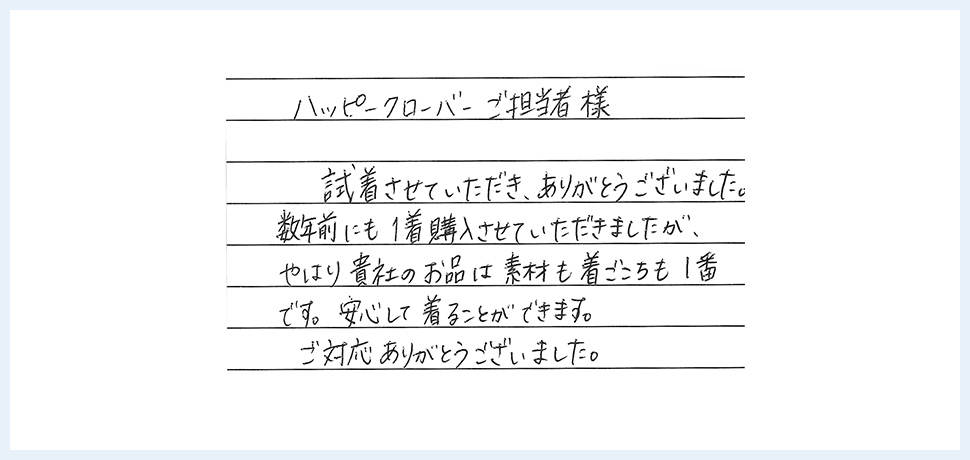 ハッピークローバー ご担当者様
試着させていただき、ありがとうございました。
数年前にも1着購入させていただきましたが、
やはり貴社のお品は素材も着ごこちも1番
です。安心して着ることができます。
ご対応ありがとうございました。